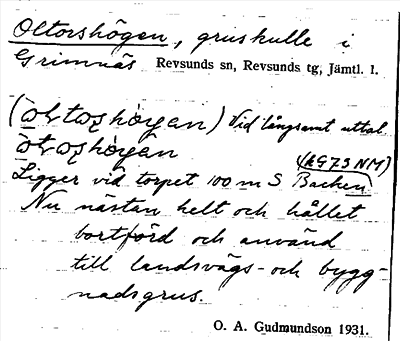 Oltorshögen, gruskulle i
Grimnäs Revsunds sn, Revsunds tg, Jämtl. l.
(òɫtoʂhö̀gen) Vid långsamt uttal
òɫtoʂhö̀gen
(k973 NM)
Ligger vid torpet 100 m S Backen
Nu nästan helt och hållet
bortförd och använd
till landsvägs- och bygg-
nadsgrus.
O. A. Gudmundson 1931.